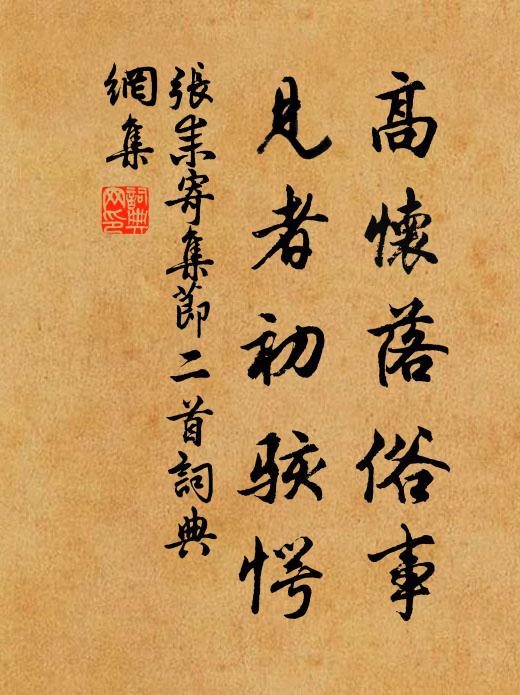 高懷落俗事
見者初駭愕
張耒寄集節二首詞典
網集
詞典
网印